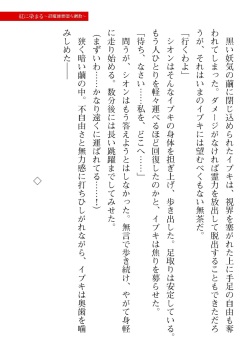 紅に染まる
黒い妖気の繭に閉じ込められたイブキは、視界を塞がれた上に手足の自由も奪
われてしまった。ダメージがなければ霊力を放出して脱出することもできただろ
うが、それはいまのイブキには望むべくもない無茶だ。
「行くわよ」
シオンはそんなイブキの身体を担ぎ上げ、歩き出した。足取りは安定している。
もう人ひとりを軽々と運べるほど回復したのかと、イブキは焦りを募らせた。
「待ち、なさい……私を、どこへ……」
問うが、シオンはもう答えようとはしなかった。無言で歩き続け、やがて身軽
に走り始める。数分後には長い跳躍までしてみせた。
（まずいわ……かなり遠くに運ばれてる……！）
狭く暗い繭の中、不自由さと無力感に打ちひしがれながら、イブキは奥歯を噛
みしめた――。
◇